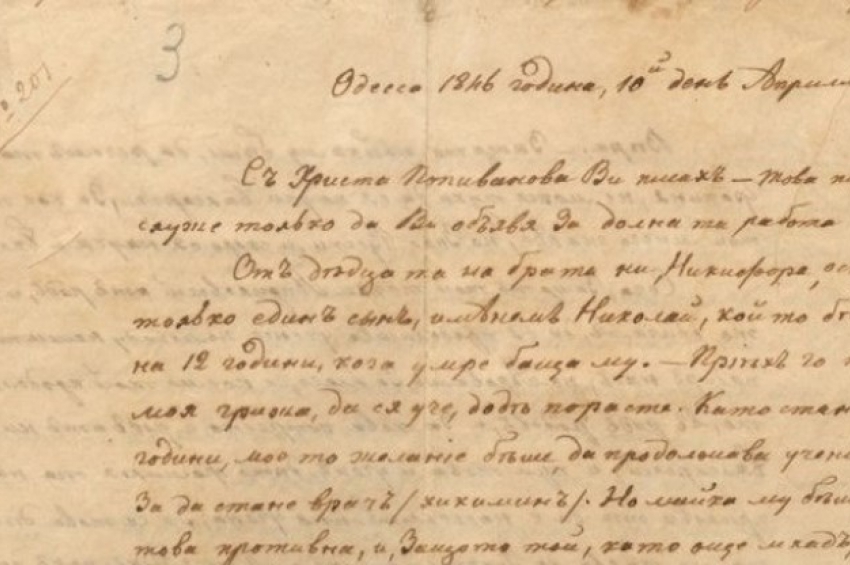 3
№ 201
Одесса 1846 година, 10ий день Априлл
Съ Христа Попиванова Ви писахъ — това
служе только да Ви объявя за долна та работа
Отъ дѣтца та на брата ни, Никифора,
только единъ сынъ, имѣнемъ Николай, кой то
на 12 години, кога умре баща му. — Пріяхъ го
моя грижа, да ся уче, додѣ порасте. Като стан
години, мое то желаніе бѣше да продолжава учен
за да стане врачъ /хикиминъ/. Но майка му бѣш
това противна, и, защото той, като още младъ,